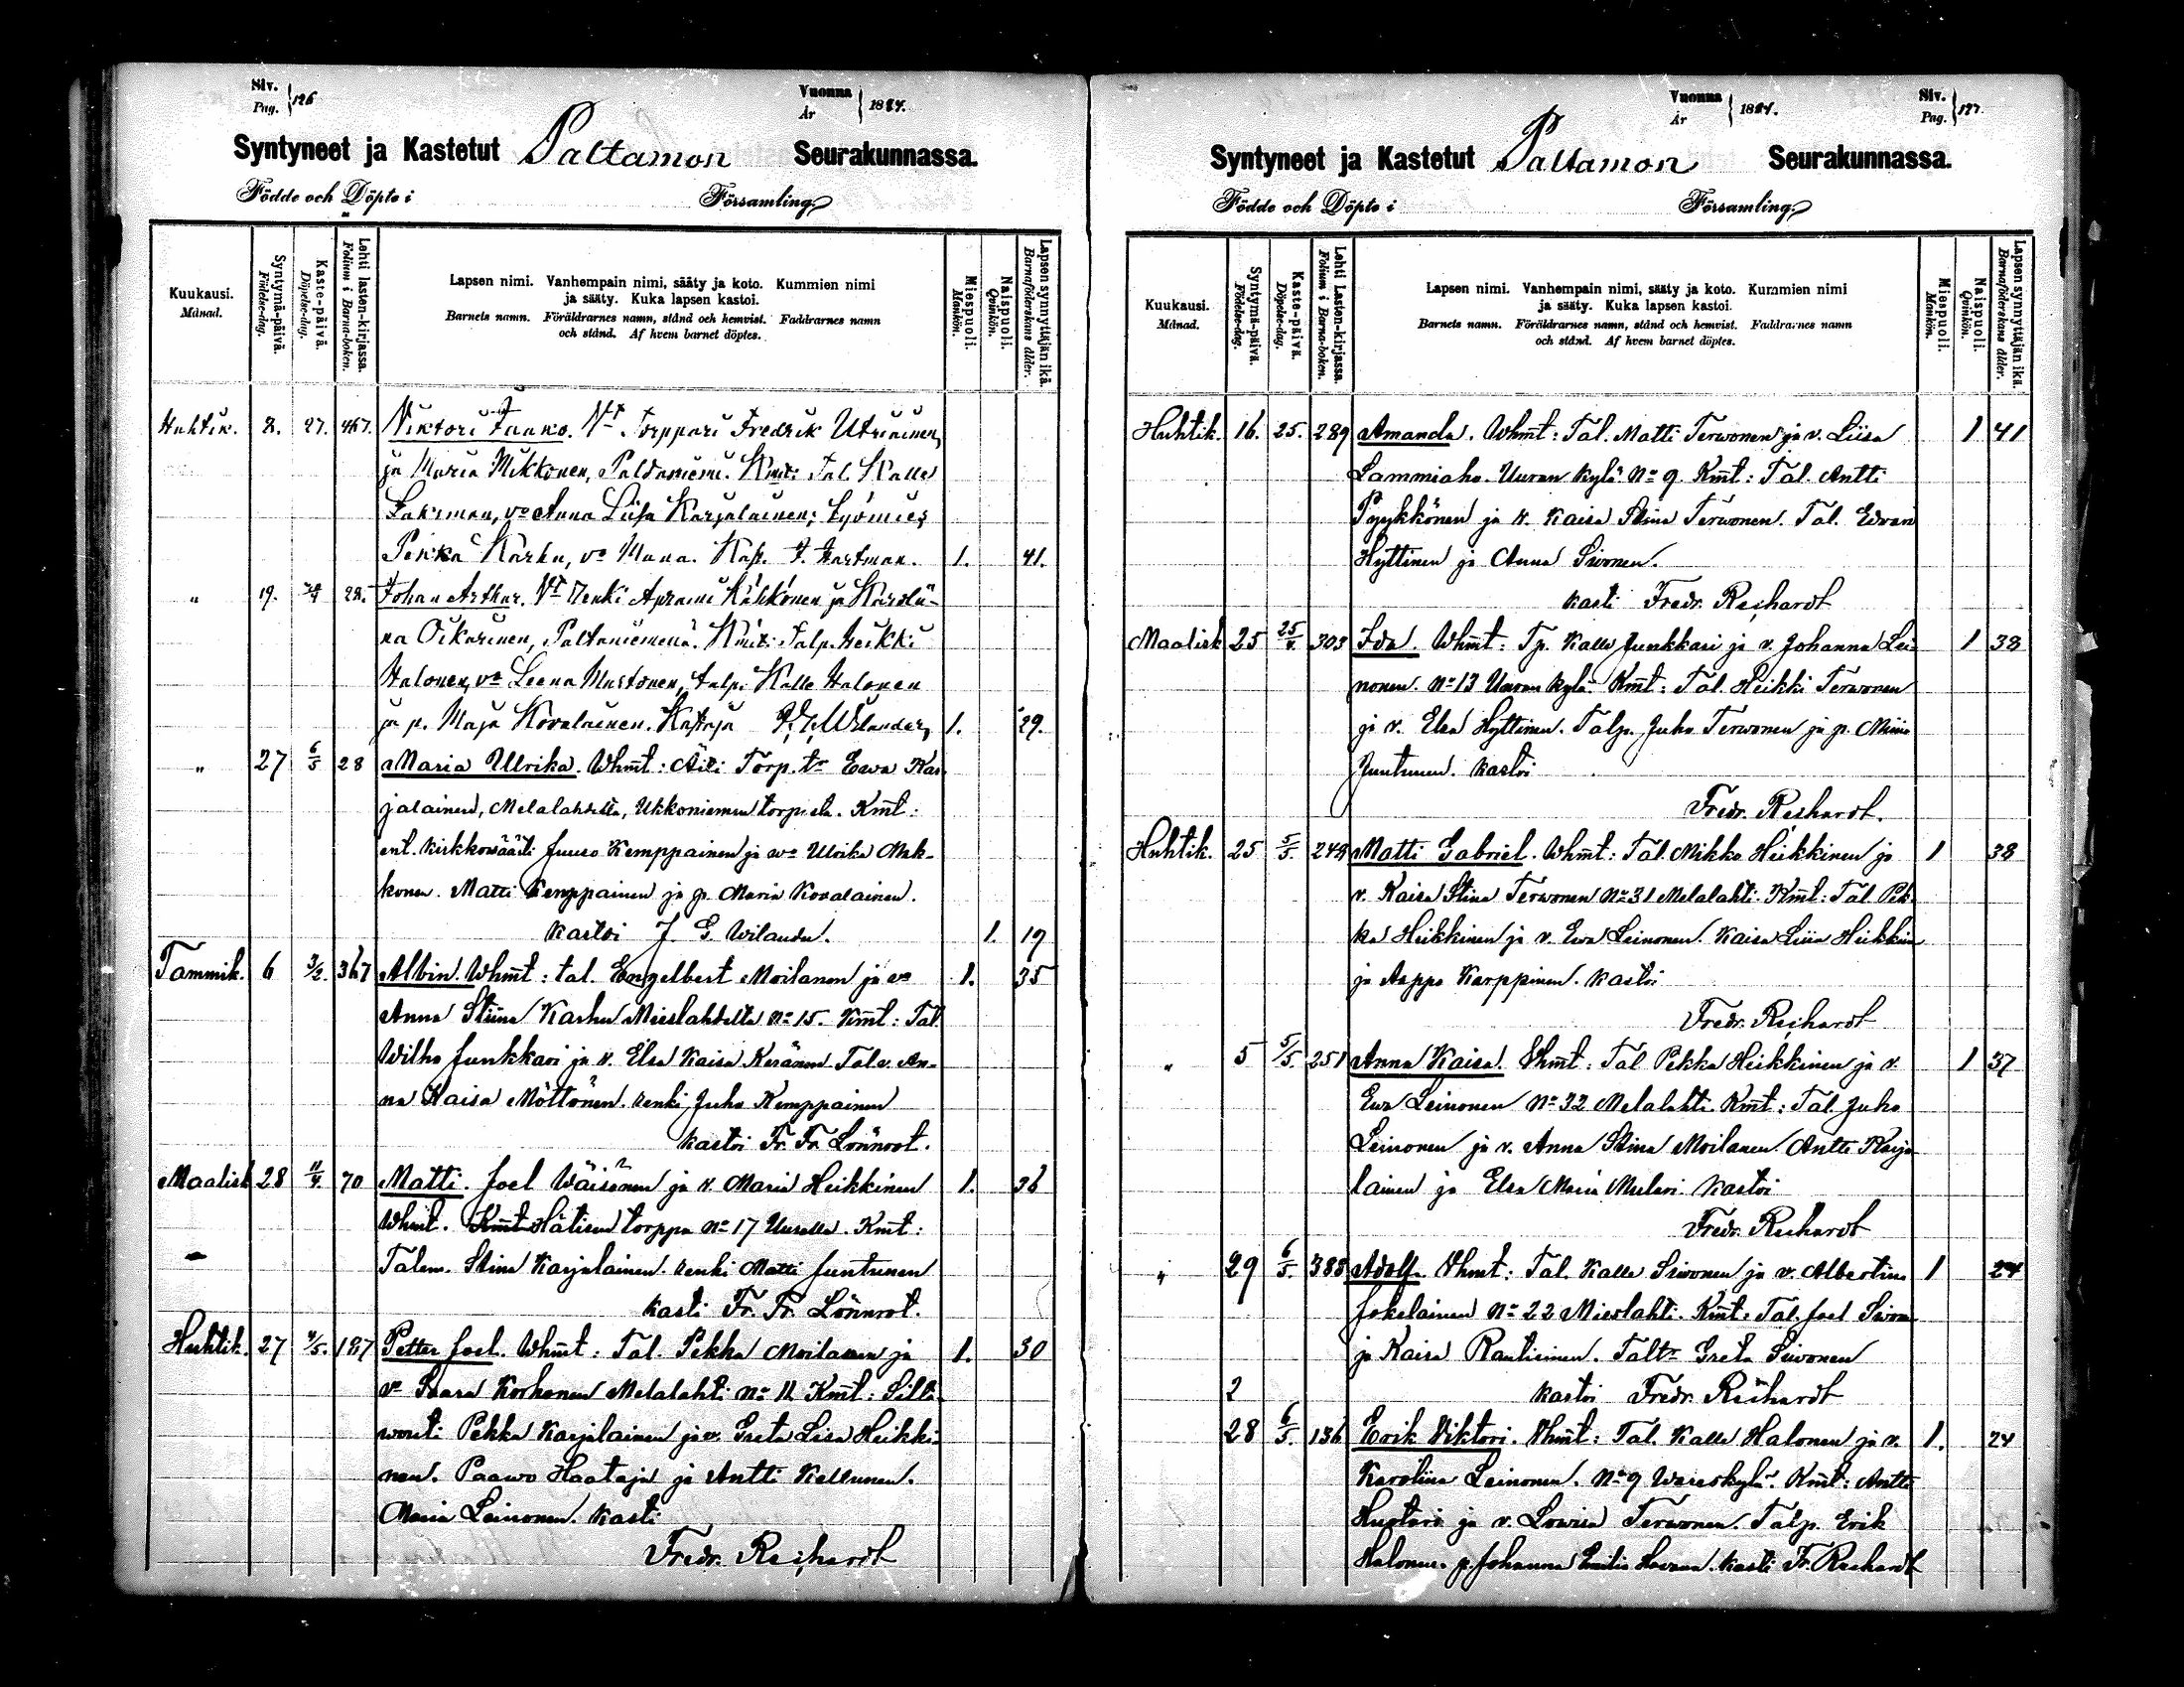 Siv.
Pag. 126
Vuonna
År 1884.
Syntyneet ja Kastetut Paltamon Seurakunnassa.
Födde och Döpte i Församling.
Kuukausi.
Månad.
Syntymä-päivä.
Födelse-dag.
Kaste-päivä.
Döpelse-dag.
Lehti lasten-kirjassa.
Folium i Barna-boken.
Lapsen nimi. Vanhempain nimi, sääty ja koto. Kummien nimi
ja sääty. Kuka lapsen kastoi.
Barnets namn. Föräldrarnes namn, stånd och hemvist. Faddrarnes namn
och stånd. Af hvem barnet döptes.
Miespuoli.
Mankön.
Naispuoli.
Qvinkön.
Lapsen synnyttäjän ikä.
Barnaföderskans ålder.
Huhtik. 8. 27. 467. Viktori Jaako. Vt Torppari Fredrik Utriainen,
ja Maria Mikkonen, Paldaniemi. Kmt: Tal. Kalle
Lakeman, vo Anna Liisa Karjalainen; Työmies
Pekka Karhu, vo Mana. Kap. F. Hartman. 1. 41.
" 19. 28. Johan Arthur. Vt Renki Aprami Kähkönen ja Karolii-
na Oikarinen, Paltaniemenä. Kmt: Talp. Heikki
Halonen, vo Leena Mustonen, talp. Kalle Halonen
ja p. Maja Kovalainen. Kastaja J. G. Wilander, 1. 29.
" 27 6/5 28 Maria Ulrika. Whmt: Äiti Torp. tr Eewa Kar-
jalainen, Melalahdelta, Ukkoniemen torpasta. Kmt:
ent. kirkkowäärti Juuso Kemppainen ja wo Ulrika Mik-
konen. Matti Kemppainen ja p. Maria Kovalainen.
kastoi J. G. Wilander. 1. 19
Tammik. 6 3/2. 367 Albin. Whmt: tal. Engelbert Moilanen ja vo 1. 35
Anna Stiina Karhu Mieslahdelta No 15. Kmt: Tal.
Wilho Junkkari ja v. Elsa Kaisa Keränen Tal. v. An-
na Kaisa Möttönen. renki Juho Kemppainen
kastoi Fr. Fr. Lönnrot.
Maalisk 28 11/4 70 Matti. Joel Wäisänen ja v. Maria Heikkinen 1. 36
Whmt. Kmt Hätisen torppa No 17 Uuralla. Kmt:
Talem. Stina Karjalainen. renki Matti Juntunen
kasti Fr. Fr. Lönnrot.
Huhtik. 27 /5. 187 Petter Joel. Whmt: Tal. Pekka Moilanen ja 1. 30
vo Saara Korhonen Melalahti No 11 Kmt: Silta
wouti Pekka Karjalainen ja v. Greta Lisa Heikki-
nen. Paawo Haataja ja Antti Kellunen.
Maria Leinonen. kasti
Fredr. Reihardt
Vuonna
År 1884.
Siv.
Pag. 127.
Syntyneet ja Kastetut Paltamon Seurakunnassa.
Födde och Döpte i Församling.
Kuukausi.
Månad.
Syntymä-päivä.
Födelse-dag.
Kaste-päivä.
Döpelse-dag.
Lehti Lasten-kirjassa.
Folium i Barna-boken.
Lapsen nimi. Vanhempain nimi, sääty ja koto. Kummien nimi
ja sääty. Kuka lapsen kastoi.
Barnets namn. Föräldrarnes namn, stånd och hemvist. Faddrarnes namn
och stånd. Af hvem barnet döptes.
Miespuoli.
Mankön.
Naispuoli.
Qvinkön.
Lapsen synnyttäjän ikä.
Barnaföderskans ålder.
Huhtik. 16. 25. 289 Amanda. Whmt: Tal. Matti Terwonen ja v. Liisa 1 41
Lammiaho. Uuran kylä No 9. Kmt: Tal. Antti
Pyykkönen ja v. Kaisa Stina Terwonen. Tal. Edvard
Hyttinen ja Anna Siwonen.
kasti Fredr. Reihardt
Maalisk 25 25/4. 303 Ida. Whmt: Tp. Kalle Junkkari ja v. Johanna Lei- 1 38
nonen. No 13 Uuran kylä. Kmt: Tal. Heikki Terwonen
ja v. Elsa Hyttinen. Talp. Juho Terwonen ja p. Miina
Juntunen. kastoi
Fredr. Reihardt.
Huhtik. 25 5/5. 249 Matti Gabriel. Whmt: Tal. Mikko Heikkinen ja 1 38
v. Kaisa Stina Terwonen No 31 Melalahti. Kmt: Tal. Pek-
ka Heikkinen ja v. Ewa Leinonen. Kaisa Liisa Heikkin
ja Aappo Karppinen. kastoi
Fredr. Reihardt
" 5 5/5. 251 Anna Kaisa. Vhmt: Tal Pekka Heikkinen ja v. 1 37
Ewa Leinonen No 32 Melalahti. Kmt: Tal. Juho
Leinonen ja v. Anna Stina Moilanen. Antti Karja
lainen ja Elsa Maria Mulari. kastoi
Fredr. Reihardt
" 29 6/5. 388 Adolf. Vhmt: Tal. Kalle Siwonen ja v. Albertina 1 24
Jokelainen No 22 Mieslahti. Kmt: Tal. Joel Siwon
ja Kaisa Rautiainen. Taltr Greta Siwonen
2 kastoi Fredr. Reihardt
28 6/5. 136 Erik Viktori. Vhmt: Tal. Kalle Halonen ja v. 1. 24
Karoliina Leinonen. No 9 Wareskylä. Kmt: Antti
Huotari ja v. Lowisa Terwonen. Talp. Erik
Halonen. p. Johanna Emilia kasti Fr. Reihardt